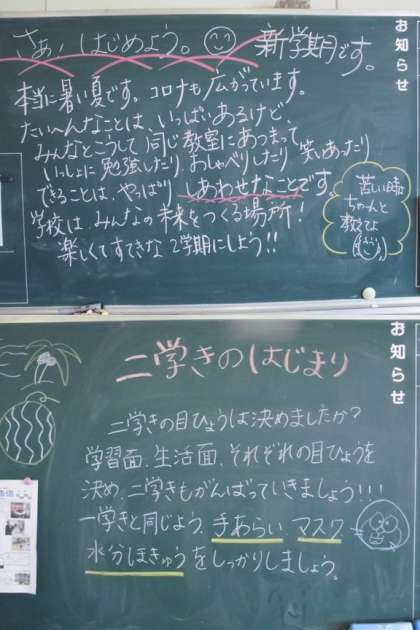 お知らせ
さあ！はじめよう。 新学期です。
本当に暑い夏です。コロナも広がっています。
たいへんなことは、いっぱいあるけど、
みんなとこうして同じ教室にあつまって
いっしょに勉強したり、おしゃべりしたり 笑いあったり
できることは、やっぱり しあわせなことです。
学校は、みんなの未来をつくる場所！
楽しくてすてきな2学期にしよう!!
苦しい時は
ちゃんと
教えてよ
お知らせ
二学きのはじまり
二学きの目ひょうは決めましたか？
学習面、生活面、それぞれの目ひょうを
決め、二学きもがんばっていきましょう!!!
一学きと同じよう、手あらい マスク
水分ほきゅうをしっかりしましょう。